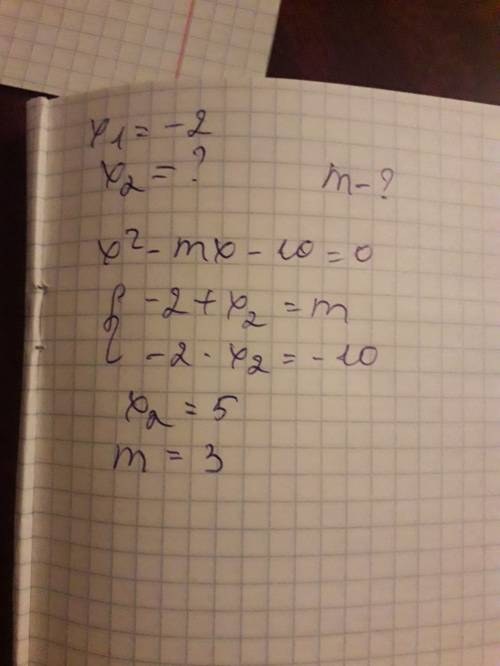 x₁ = -2
x₂ = ? m - ?
x² - mx - 10 = 0
{ -2 + x₂ = m
-2 · x₂ = -10
x₂ = 5
m = 3